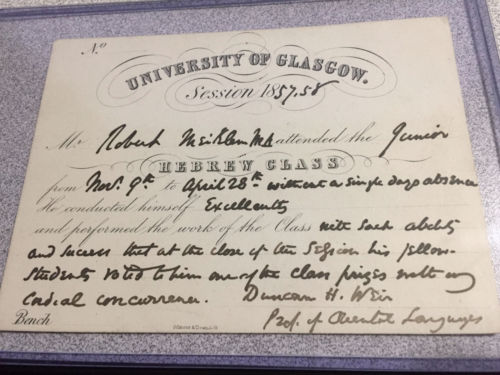 No
UNIVERSITY OF GLASGOW.
Session 1857.58
Mr Robert Meiklem MA attended the Junior
HEBREW CLASS
from Novr. 9th to April 28th without a single days absence
He conducted himself Excellently
and performed the work of the Class with such ability
and success that at the close of the Session his fellow-
students voted to him one of the class prizes with my
cordial concurrence. Duncan H. Weir
Bench Prof. of Oriental Languages